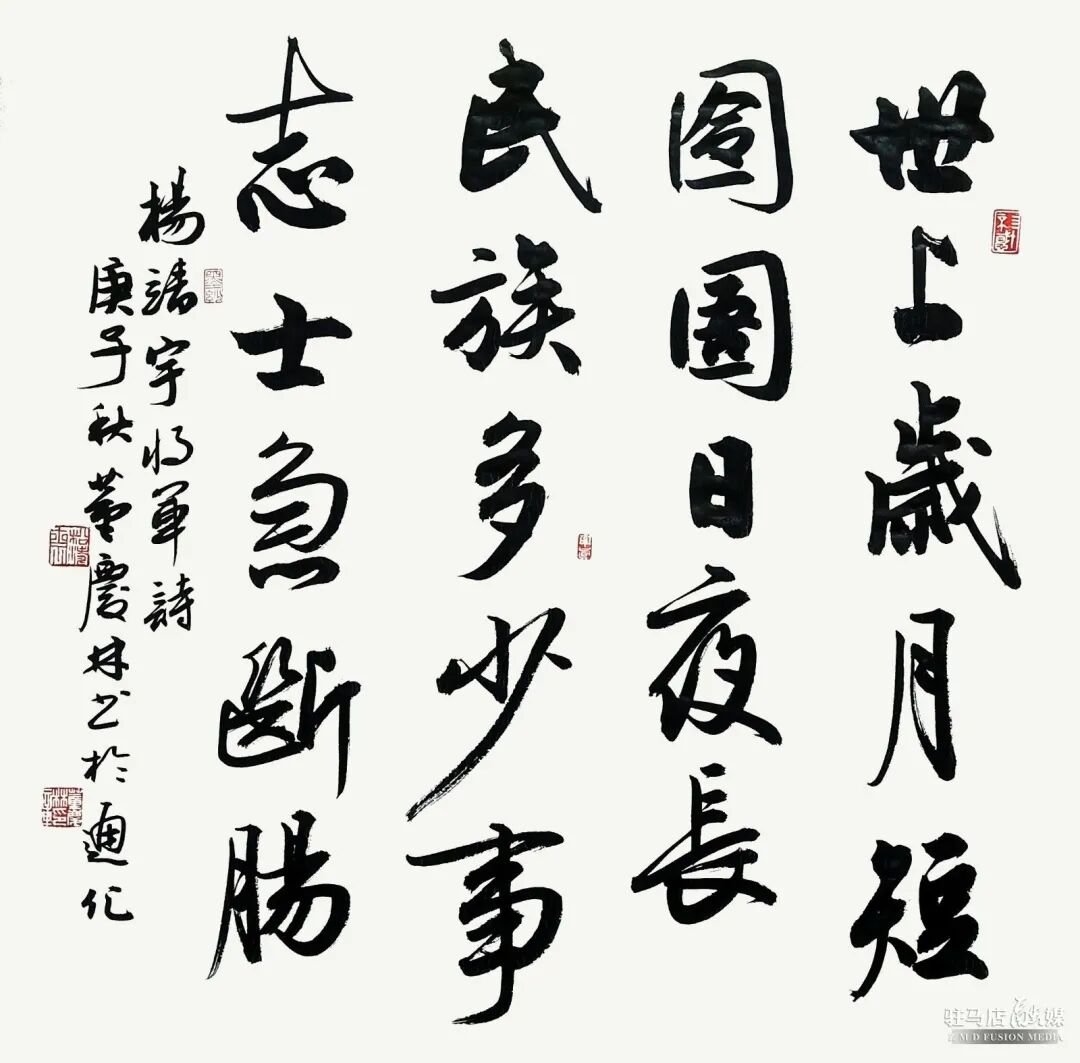 世上歲月短
囹圄日夜長
民族多少事
志士急斷腸
楊靖宇将軍詩
庚子秋董慶林书於通化
驻马店融媒
ZMD FUSION MEDIA